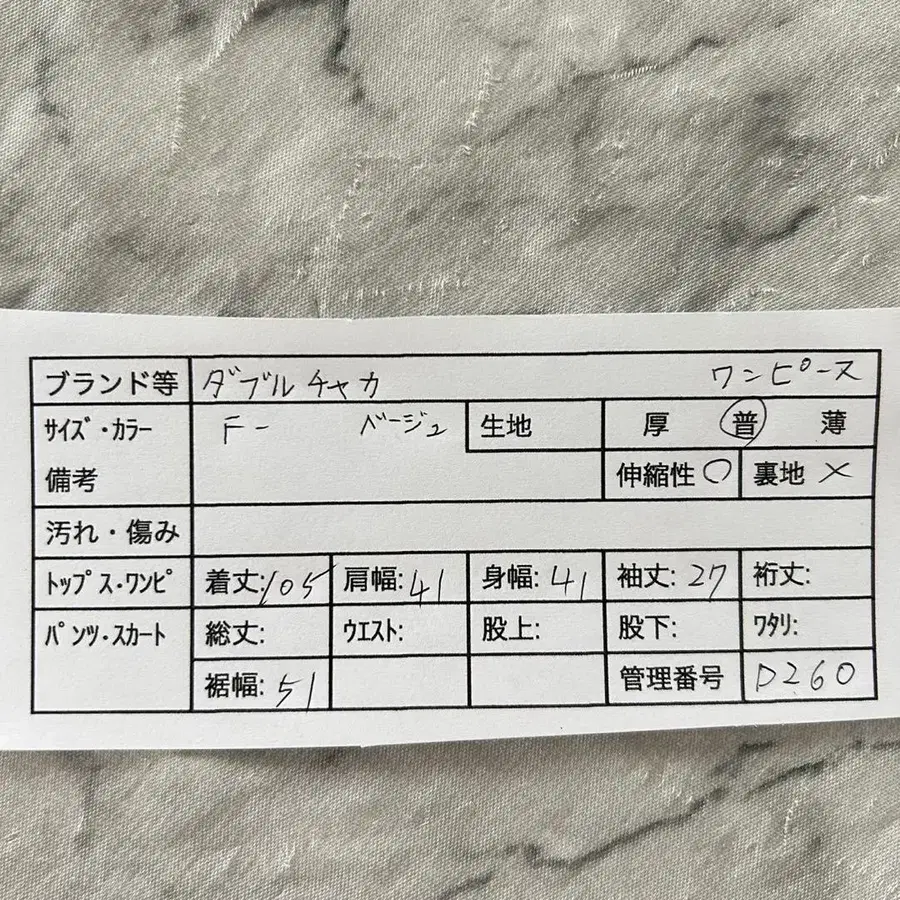 ブランド等 ダブルチャカ ワンピース
サイズ・カラー F- ベージュ 生地 厚 普 薄
備考 伸縮性 ○ 裏地 ×
汚れ・傷み
トップス・ワンピ 着丈:105 肩幅:41 身幅:41 袖丈:27 裄丈:
パンツ・スカート 総丈: ウエスト: 股上: 股下: ワタリ:
裾幅:51 管理番号 D260